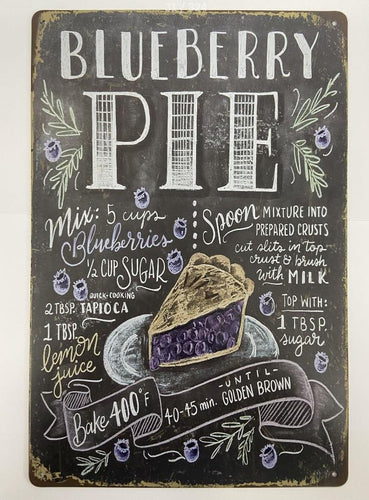 BLUEBERRY
PIE
Mix: 5 cups
Blueberries
½ CUP SUGAR
QUICK-COOKING
2 TBSP. TAPIOCA
1 TBSP.
lemon
juice
Spoon MIXTURE INTO
PREPARED CRUSTS
cut slits in top
crust & brush
with MILK
TOP WITH:
1 TBSP.
sugar
Bake 400°F
40-45 min.
-UNTIL-
GOLDEN BROWN